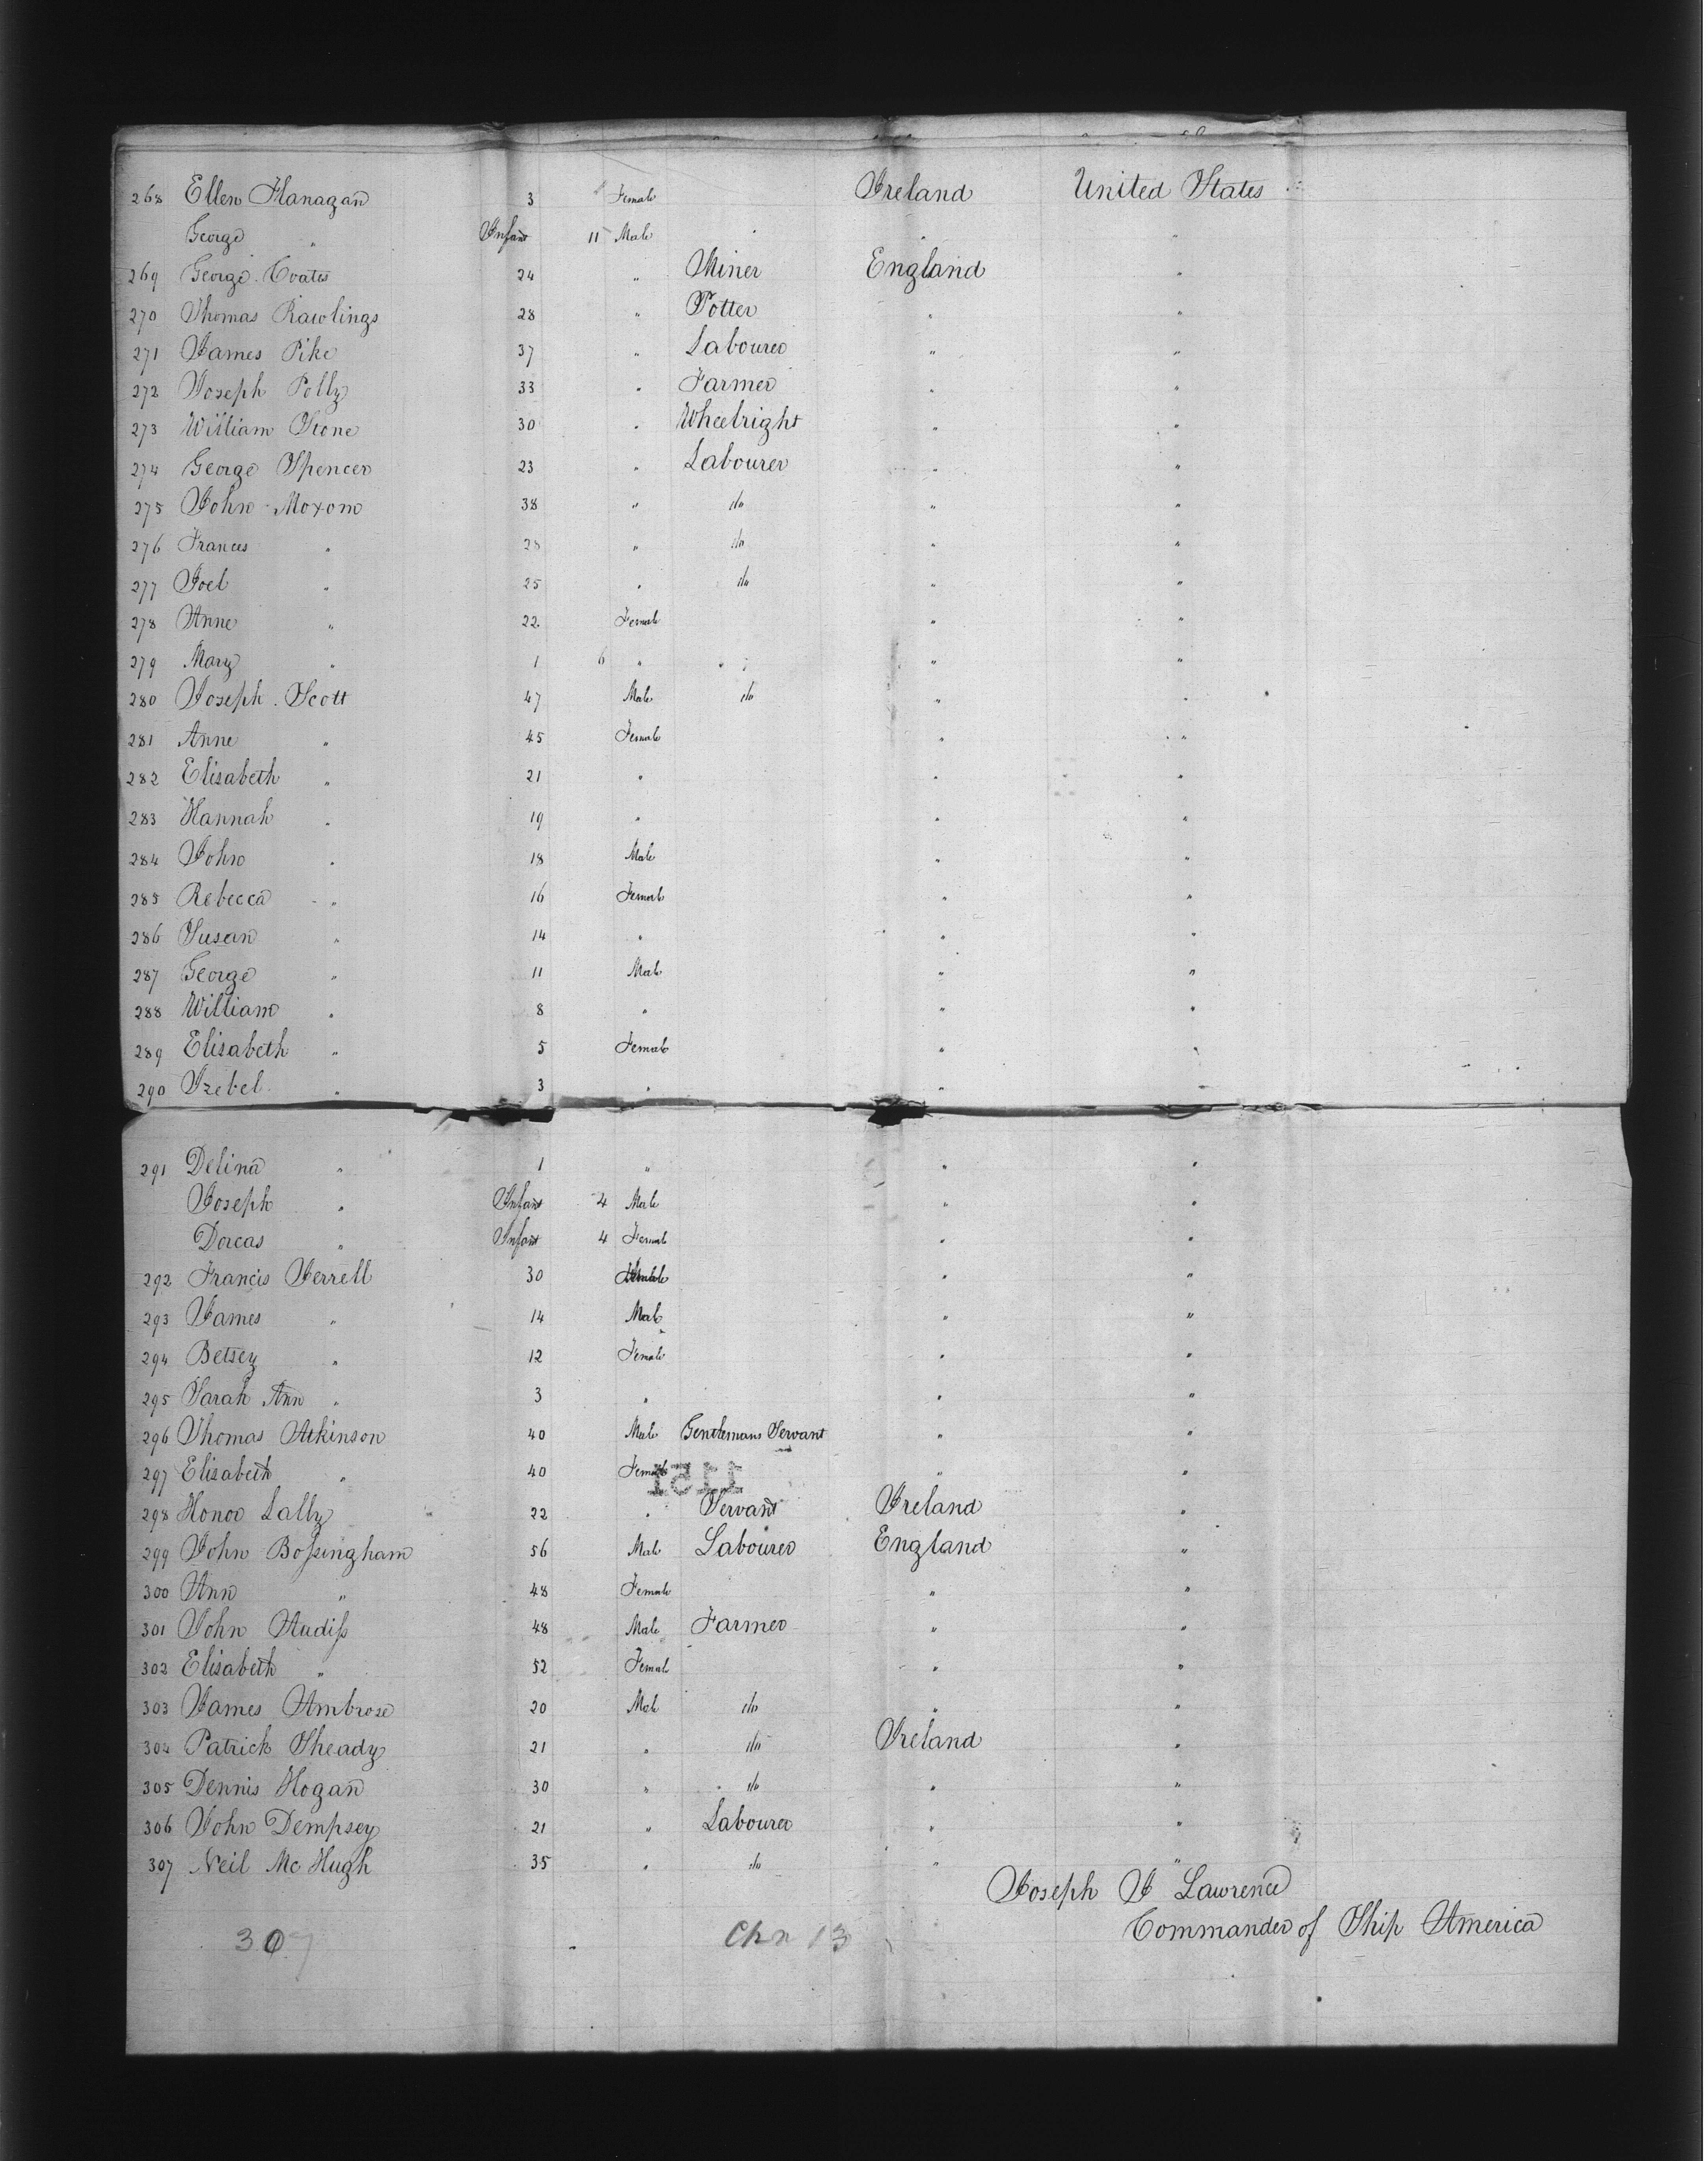 268 Ellen Flanagan 3 Female Ireland United States
George " Infant 11 Male " " "
269 George Coates 24 " Miner England "
270 Thomas Rawlings 28 " Potter " "
271 James Pike 37 " Labourer " "
272 Joseph Polly 33 " Farmer " "
273 William Stone 30 " Wheelright " "
274 George Spencer 23 " Labourer " "
275 John Moxom 38 " do " "
276 Frances " 28 " do " "
277 Joel " 25 " do " "
278 Anne " 22 Female " "
279 Mary " 1 6 " " " "
280 Joseph Scott 47 Male do " "
281 Anne " 45 Female " "
282 Elisabeth " 21 " " "
283 Hannah " 19 " " "
284 John " 18 Male " "
285 Rebecca " 16 Female " "
286 Susan " 14 " " "
287 George " 11 Male " "
288 William " 8 " " "
289 Elisabeth " 5 Female " "
290 Izebel " 3 " "
291 Delina " 1 " " "
Joseph " Infant 4 Male " "
Dorcas " Infant 4 Female " "
292 Francis Jerrell 30 " "
293 James " 14 Male " "
294 Betsey " 12 Female " "
295 Sarah Ann " 3 " " "
296 Thomas Atkinson 40 Male Gentlemans Servant " "
297 Elisabeth " 40 Female " "
1151
298 Honor Lally 22 " Servant Ireland "
299 John Bossingham 56 Male Labourer England "
300 Ann " 48 Female " "
301 John Audiss 48 Male Farmer " "
302 Elisabeth " 52 Female " "
303 James Ambrose 20 Male do " "
304 Patrick Sheady 21 " do Ireland "
305 Dennis Hogan 30 " do " "
306 John Dempsey 21 " Labourer " "
307 Neil Mc Hugh 35 " do " "
Joseph J Lawrence
Commander of Ship America
307 13